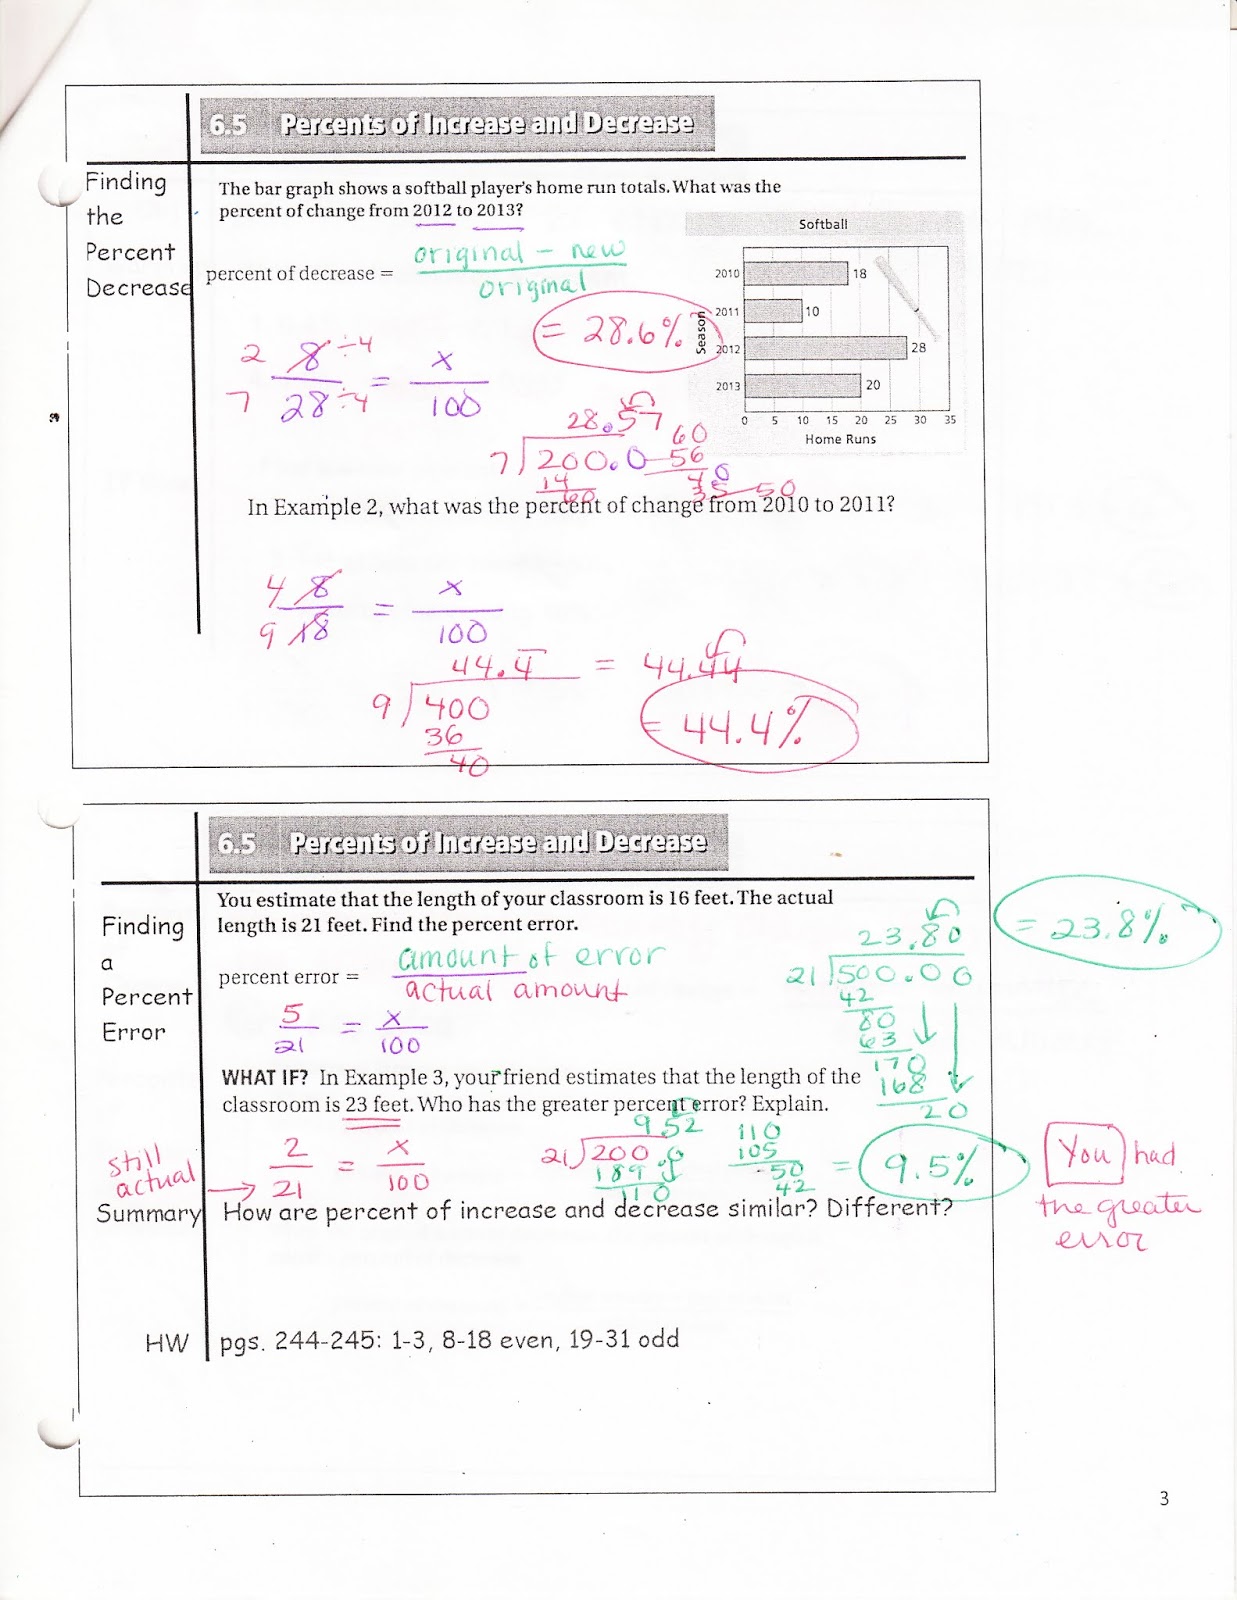 6.5 Percents of Increase and Decrease
Finding
the
Percent
Decrease
The bar graph shows a softball player's home run totals. What was the
percent of change from 2012 to 2013?
percent of decrease =
original - new
original
= 28.6%
Softball
Season
2010 18
2011 10
2012 28
2013 20
0 5 10 15 20 25 30 35
Home Runs
2 8 ÷4 = x
7 28 ÷4 100
28.57
7 200.0
14
60
60
56
40
35 50
In Example 2, what was the percent of change from 2010 to 2011?
4 8 = x
9 18 100
44.4 = 44.44
9 400
36
40
= 44.4%
6.5 Percents of Increase and Decrease
Finding
a
Percent
Error
You estimate that the length of your classroom is 16 feet. The actual
length is 21 feet. Find the percent error.
percent error =
amount of error
actual amount
5 = x
21 100
23.80
21 500.00
42
80
63
170
168
20
= 23.8%
WHAT IF? In Example 3, your friend estimates that the length of the
classroom is 23 feet. Who has the greater percent error? Explain.
still
actual
2 = x
21 100
9 52
21 200
189
110
110
105
50
42
= 9.5%
You had
the greater
error
Summary
How are percent of increase and decrease similar? Different?
HW
pgs. 244-245: 1-3, 8-18 even, 19-31 odd
3